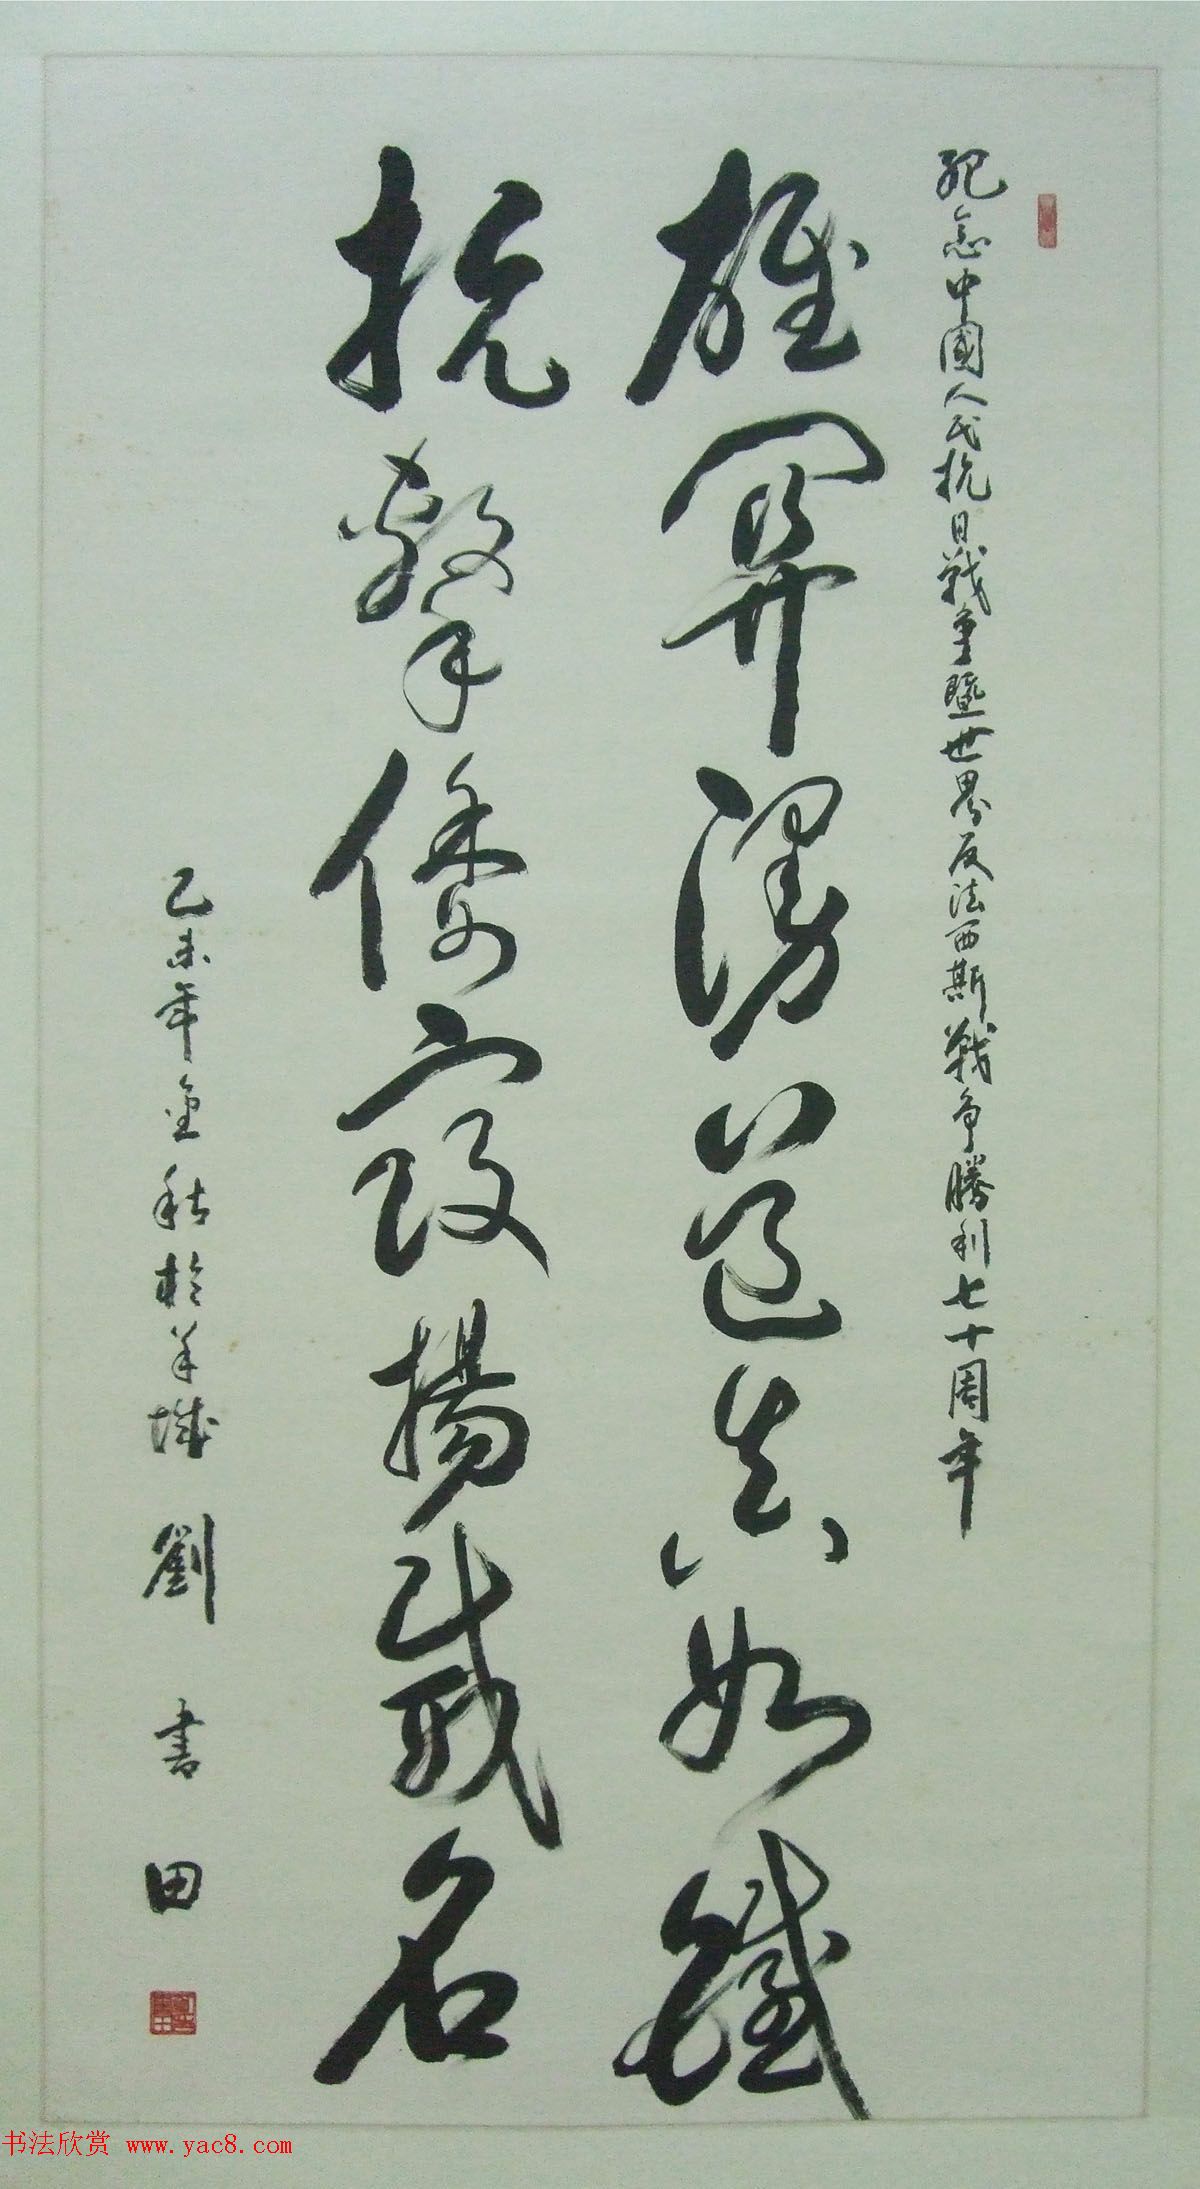 紀念中國人民抗日戰爭暨世界反法西斯戰爭勝利七十周年
雄關漫道真如鐵
抗擊倭寇揚威名
乙未年金秋於羊城 劉書田
书法欣赏 www.yac8.com